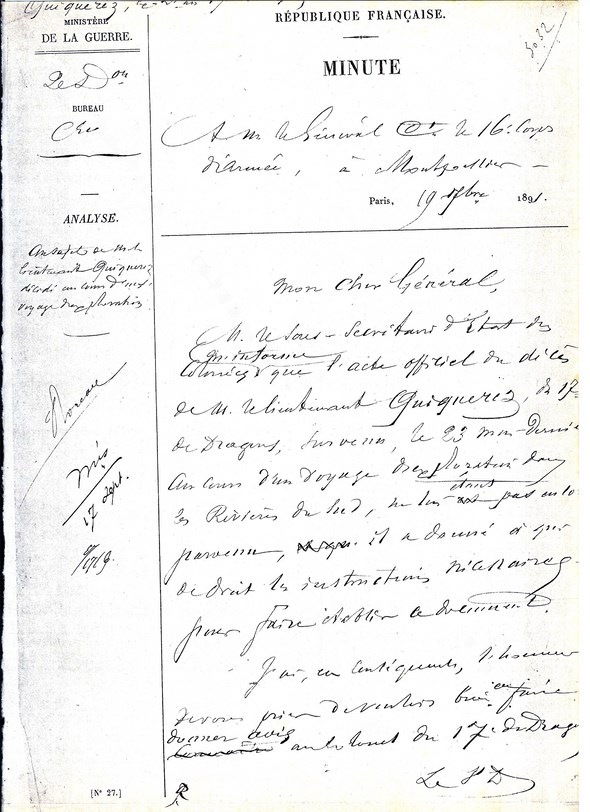 Quiquerez,
MINISTÈRE
DE LA GUERRE.
2e Don
BUREAU
RÉPUBLIQUE FRANÇAISE.
MINUTE
A M. le Général Ct le 16e Corps
d'armée, à Montpellier
Paris, 19 7bre 1891.
ANALYSE.
Au sujet de M. le
lieutenant Quiquerez
décédé au cours d'un
voyage d'exploration
17 Sept.
Mon cher Général,
M. le Sous-Secrétaire d'Etat des
Colonies m'informe que l'acte officiel du décès
de M. le lieutenant Quiquerez, du 17e
de Dragons, survenu, le 23 mai dernier
au cours d'un voyage d'exploration dans
les Rivières du Sud, ne lui étant pas encore
parvenu, il a donné à qui
de droit les instructions nécessaires
pour faire établir ce document.
J'ai, en conséquence, l'honneur
de vous prier de vouloir bien en faire
donner avis au colonel du 17e de Dragons
[N° 27.]